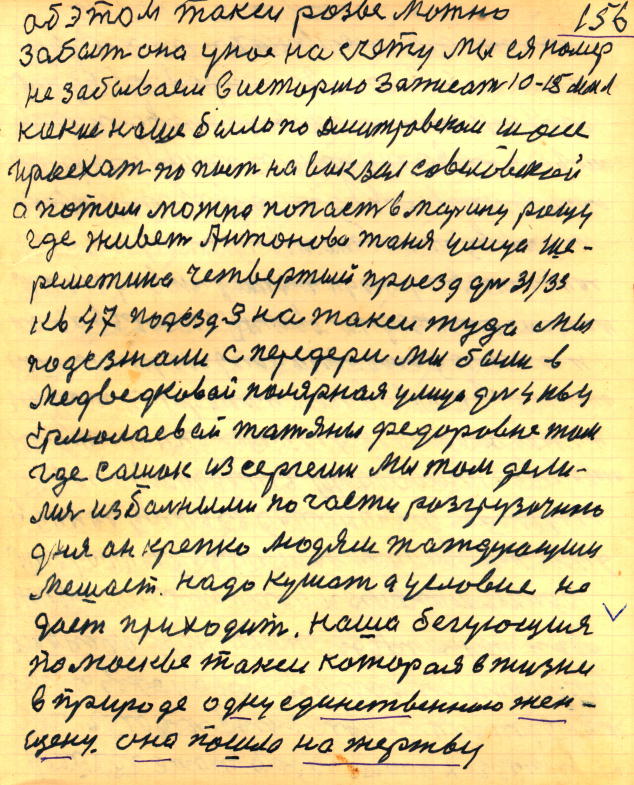 об этом такси розве можно 156
забыть она у нос на счету мы ея номер
не забываем в историю записат 10-15 мил
какие наше было по дмитровском шосе
приехат попыт на вокзал совеловской
а потом можно попаст в марину рощу
где живет Антонова таня улица ше-
реметина четвертый проезд дм 31/33
кв 47 подезд 3 на такси туда мы
подезжали с передери мы были в
медведковай полярная улица дм 4 кв 4
Ермолаевай татяны федоровне там
где сашок из сергеем мы там дели-
лис избаными по части розгрузочнно
дня он крепко людям
мешает. надо кушат а условие не
дает приходит. наша бегующия
по москве такси которая в жизни
в природе одну единственною жен-
щену. она пошла на жертву